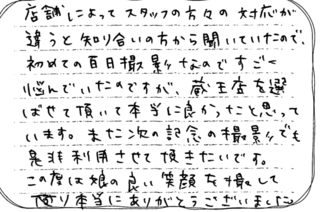 店舗によってスタッフの方々の対応が
違うと知り合いの方から聞いていたので、
初めての百日撮影なのですごく
悩んでいたのですが、蔵王店を選
ばせて頂いて本当に良かったと思って
います。また次の記念の撮影でも
是非利用させて頂きたいです。
この度は娘の良い笑顔を撮して
頂り本当にありがとうございました。